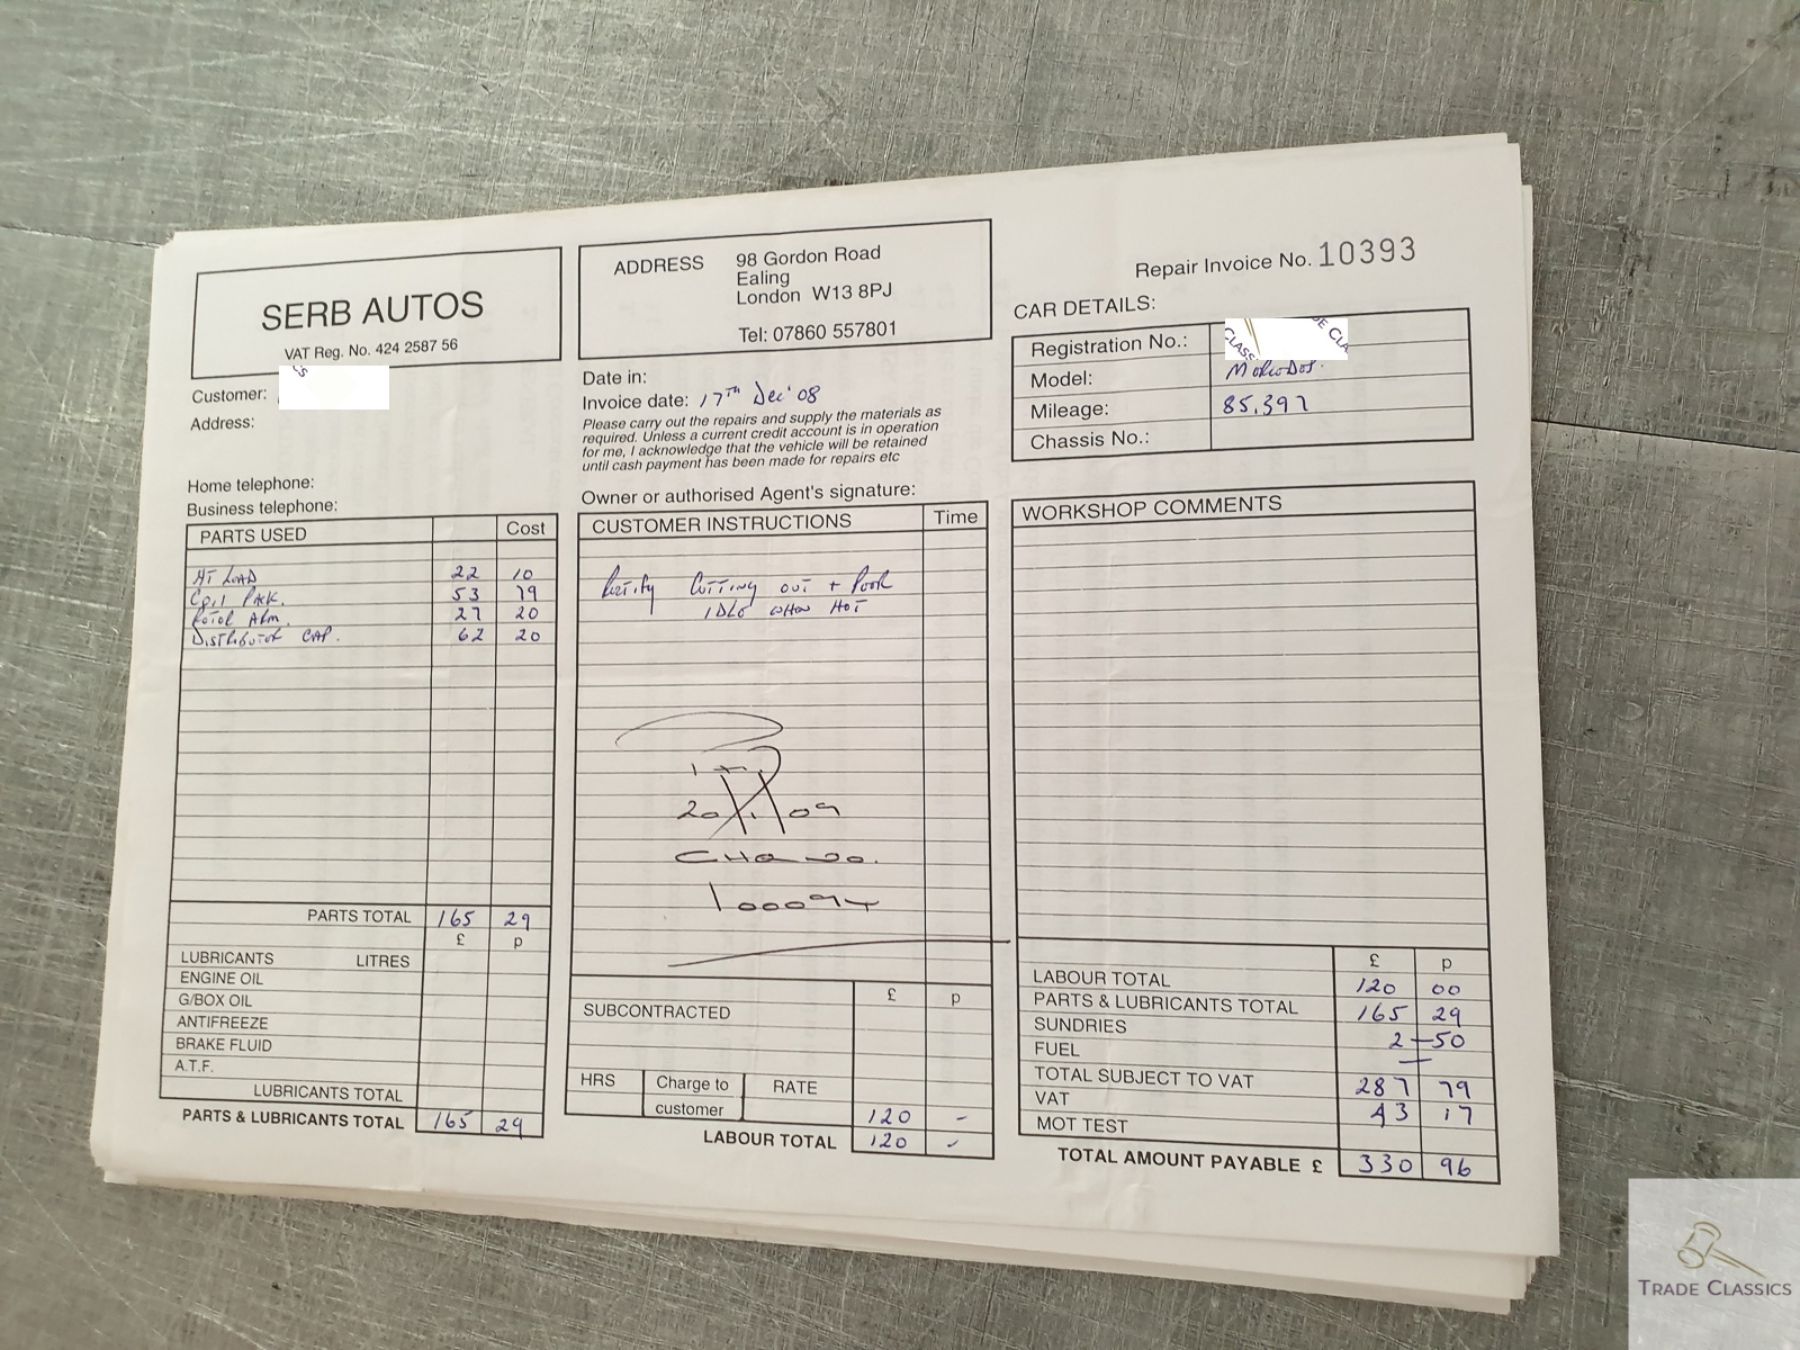 SERB AUTOS
VAT Reg. No. 424 2587 56
Customer:
Address:
Home telephone:
Business telephone:
ADDRESS 98 Gordon Road
Ealing
London W13 8PJ
Tel: 07860 557801
Date in:
Invoice date: 17TH Dec '08
Please carry out the repairs and supply the materials as
required. Unless a current credit account is in operation
for me, I acknowledge that the vehicle will be retained
until cash payment has been made for repairs etc
Owner or authorised Agent's signature:
Repair Invoice No. 10393
CAR DETAILS:
Registration No.:
Model:
Mileage: 85,397
Chassis No.:
PARTS USED Cost
HT LEAD 22 10
Coil PACK. 53 79
Rotor Arm. 27 20
DISTRIBUTOR CAP. 62 20
PARTS TOTAL 165 29
£ p
LUBRICANTS LITRES
ENGINE OIL
G/BOX OIL
ANTIFREEZE
BRAKE FLUID
A.T.F.
LUBRICANTS TOTAL
PARTS & LUBRICANTS TOTAL 165 29
CUSTOMER INSTRUCTIONS Time
Rectify Cutting out + Poor
IDLE when HOT
09
100094
SUBCONTRACTED £ p
HRS Charge to customer RATE
120 -
LABOUR TOTAL 120 -
WORKSHOP COMMENTS
£ p
LABOUR TOTAL 120 00
PARTS & LUBRICANTS TOTAL 165 29
SUNDRIES 2-50
FUEL —
TOTAL SUBJECT TO VAT 287 79
VAT 43 17
MOT TEST
TOTAL AMOUNT PAYABLE £ 330 96
TRADE CLASSICS